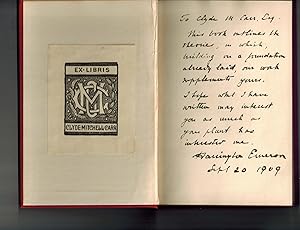 EX-LIBRIS
CLYDE·MITCHELL·CARR
To Clyde M Carr, Esq.
This book outlines the
theories, in which
building on a foundation
already laid, our work
supplements yours.
I hope what I have
written may interest
you as much as
your plant has
interested me.
Harrington Emerson
Sept 20 1909